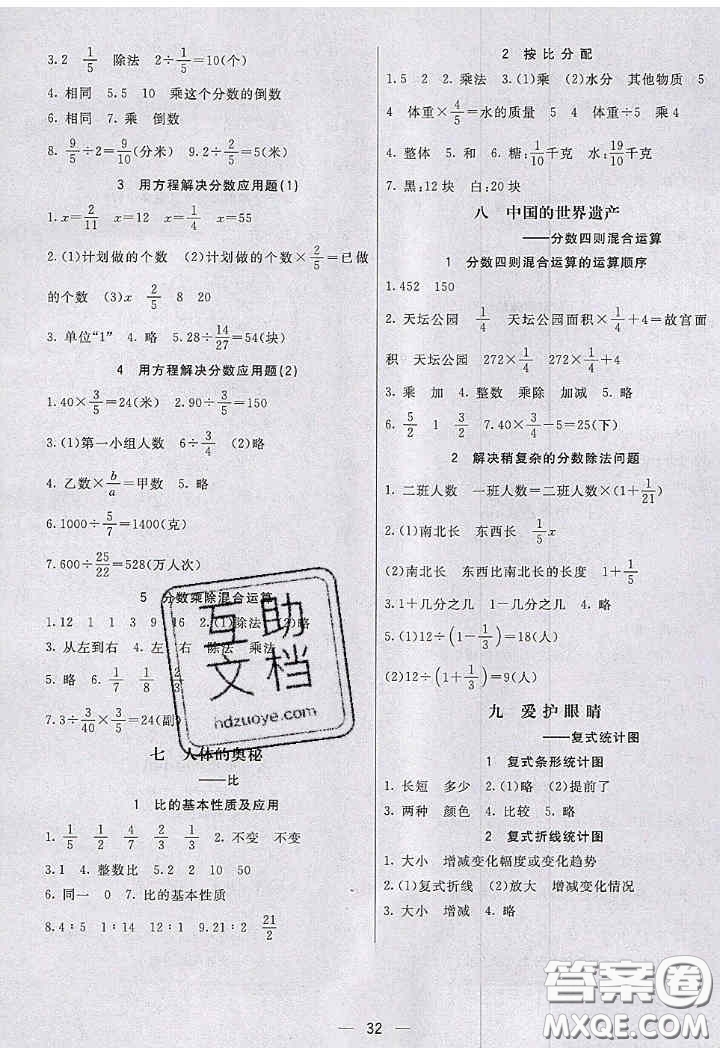 3. 2　1/5　除法　2÷1/5=10(个)
4. 相同　5. 5　10　乘这个分数的倒数
6. 相同　7. 乘　倒数
8. 9/5÷2=9/10(分米)　9. 2÷2/5=5(米)
3　用方程解决分数应用题(1)
1. x=2/11　x=1/4　x=1/4　x=55
2. (1)计划做的个数　(2)计划做的个数×2/5=已做
的个数　(3)x　2/5　8　20
3. 单位“1”　4. 略　5. 28÷14/27=54(块)
4　用方程解决分数应用题(2)
1. 40×3/5=24(米)　2. 90÷3/5=150
3. (1)第一小组人数　6÷3/4　(2)略
4. 乙数×b/a=甲数　5. 略
6. 1000÷5/7=1400(克)
7. 600÷25/22=528(万人次)
5　分数乘除混合运算
1. 12　1　3　9　16　2. (1)除法　(2)略
3. 从左到右　4. 左　右　除法　乘法
5. 略　6. 1/7　1/8　1/3
7. 3÷3/40×3/5=24(副)
七　人体的奥秘
——比
1　比的基本性质及应用
1. 1/5　1/2　4/1　2/3　3/2　2. 不变　不变
3. 1　4. 整数比　5. 2　2　10　50
6. 同一　0　7. 比的基本性质
8. 4∶5　1∶14　12∶1　9. 21∶2　21/2
2　按比分配
1. 5　2　2. 乘法　3. (1)乘　(2)水分　其他物质　5
4　体重×4/5=水的质量　5　4　体重÷5　乘4
4. 整体　5. 和　6. 糖:1/10千克　水:19/10千克
7. 黑:12块　白:20块
八　中国的世界遗产
——分数四则混合运算
1　分数四则混合运算的运算顺序
1. 452　150
2. 天坛公园　1/4　天坛公园面积×1/4+4=故宫面
积　天坛公园　272×1/4　272×1/4+4
3. 乘　加　4. 整数　乘除　加减　5. 略
6. 5/2　1　3/2　7. 40×3/4-5=25(下)
2　解决稍复杂的分数除法问题
1. 二班人数　一班人数=二班人数×(1+1/21)
2. (1)南北长　东西长　1/5x
(2)南北长　东西比南北长的长度　1+1/5
3. 1+几分之几　1-几分之几　4. 略
5. (1)12÷(1-1/3)=18(人)
(2)12÷(1+1/3)=9(人)
九　爱护眼睛
——复式统计图
1　复式条形统计图
1. 长短　多少　2. (1)略　(2)提前了
3. 两种　颜色　4. 比较　5. 略
2　复式折线统计图
1. 大小　增减变化幅度或变化趋势
2. (1)复式折线　(2)放大　增减变化情况
3. 大小　增减　4. 略
— 32 —
互助
文档
hdzuoye.com
答案卷
MXQE.COM